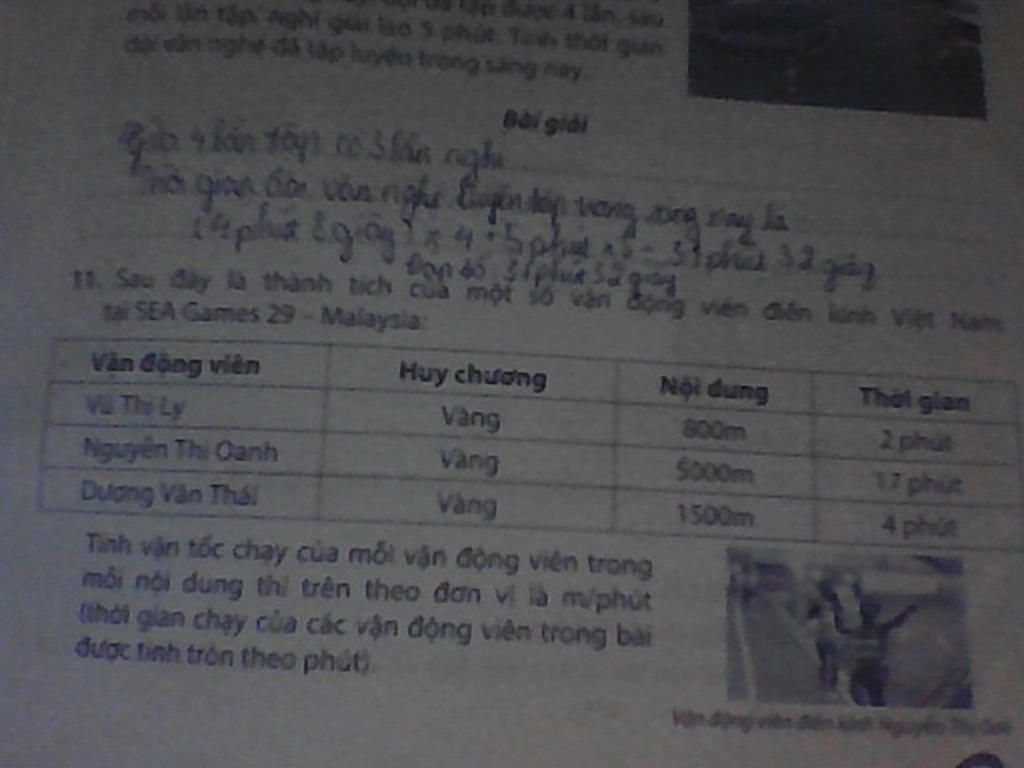 tập được 4 lần, sau
mỗi lần tập, nghỉ giải lao 5 phút. Tính thời gian
đội văn nghệ đã tập luyện trong sáng nay.
Bài giải
4 lần tập có 3 lần nghỉ
Thời gian đội văn nghệ luyện tập trong sáng nay là
(4 phút 8 giây) x 4 + 5 phút x 3 = 31 phút 32 giây
Đáp số 31 phút 32 giây
11. Sau đây là thành tích của một số vận động viên điền kinh Việt Nam
tại SEA Games 29 – Malaysia:
Vận động viên Huy chương Nội dung Thời gian
Vũ Thị Ly Vàng 800m 2 phút
Nguyễn Thị Oanh Vàng 5000m 17 phút
Dương Văn Thái Vàng 1500m 4 phút
Tính vận tốc chạy của mỗi vận động viên trong
mỗi nội dung thi trên theo đơn vị là m/phút
(thời gian chạy của các vận động viên trong bài
được tính tròn theo phút).
Vận động viên điền kinh Nguyễn Thị Oanh